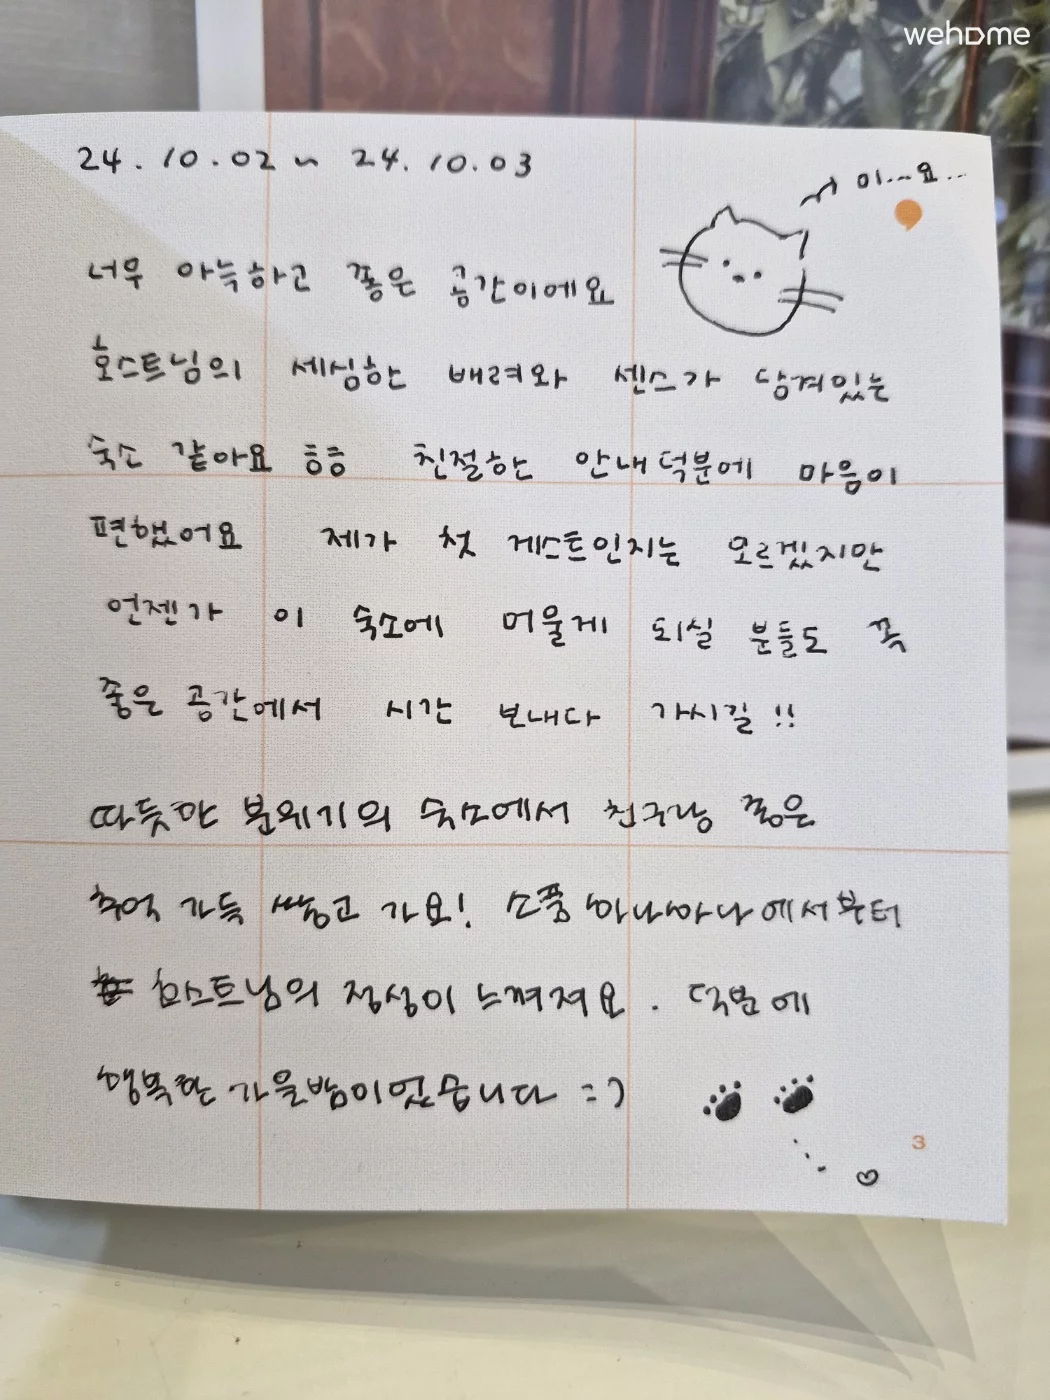 wehome
24.10.02 ~ 24.10.03
이...요...
너무 아늑하고 쫗은 공간이에요
호스트님의 세심한 배려와 센스가 담겨있는
숙소 같아요 흠흠 친절한 안내덕분에 마음이
편했어요 제가 첫 게스트인지는 모르겠지만
언젠가 이 숙소에 머물게 되실 분들도 꼭
좋은 공간에서 시간 보내다 가시길!!
따듯한 분위기의 숙소에서 친구랑 쫗은
추억 가득 쌓고 가요! 소품 하나하나에서부터
호스트님의 정성이 느껴져요. 덕분에
행복한 가을밤이었습니다 =)
3